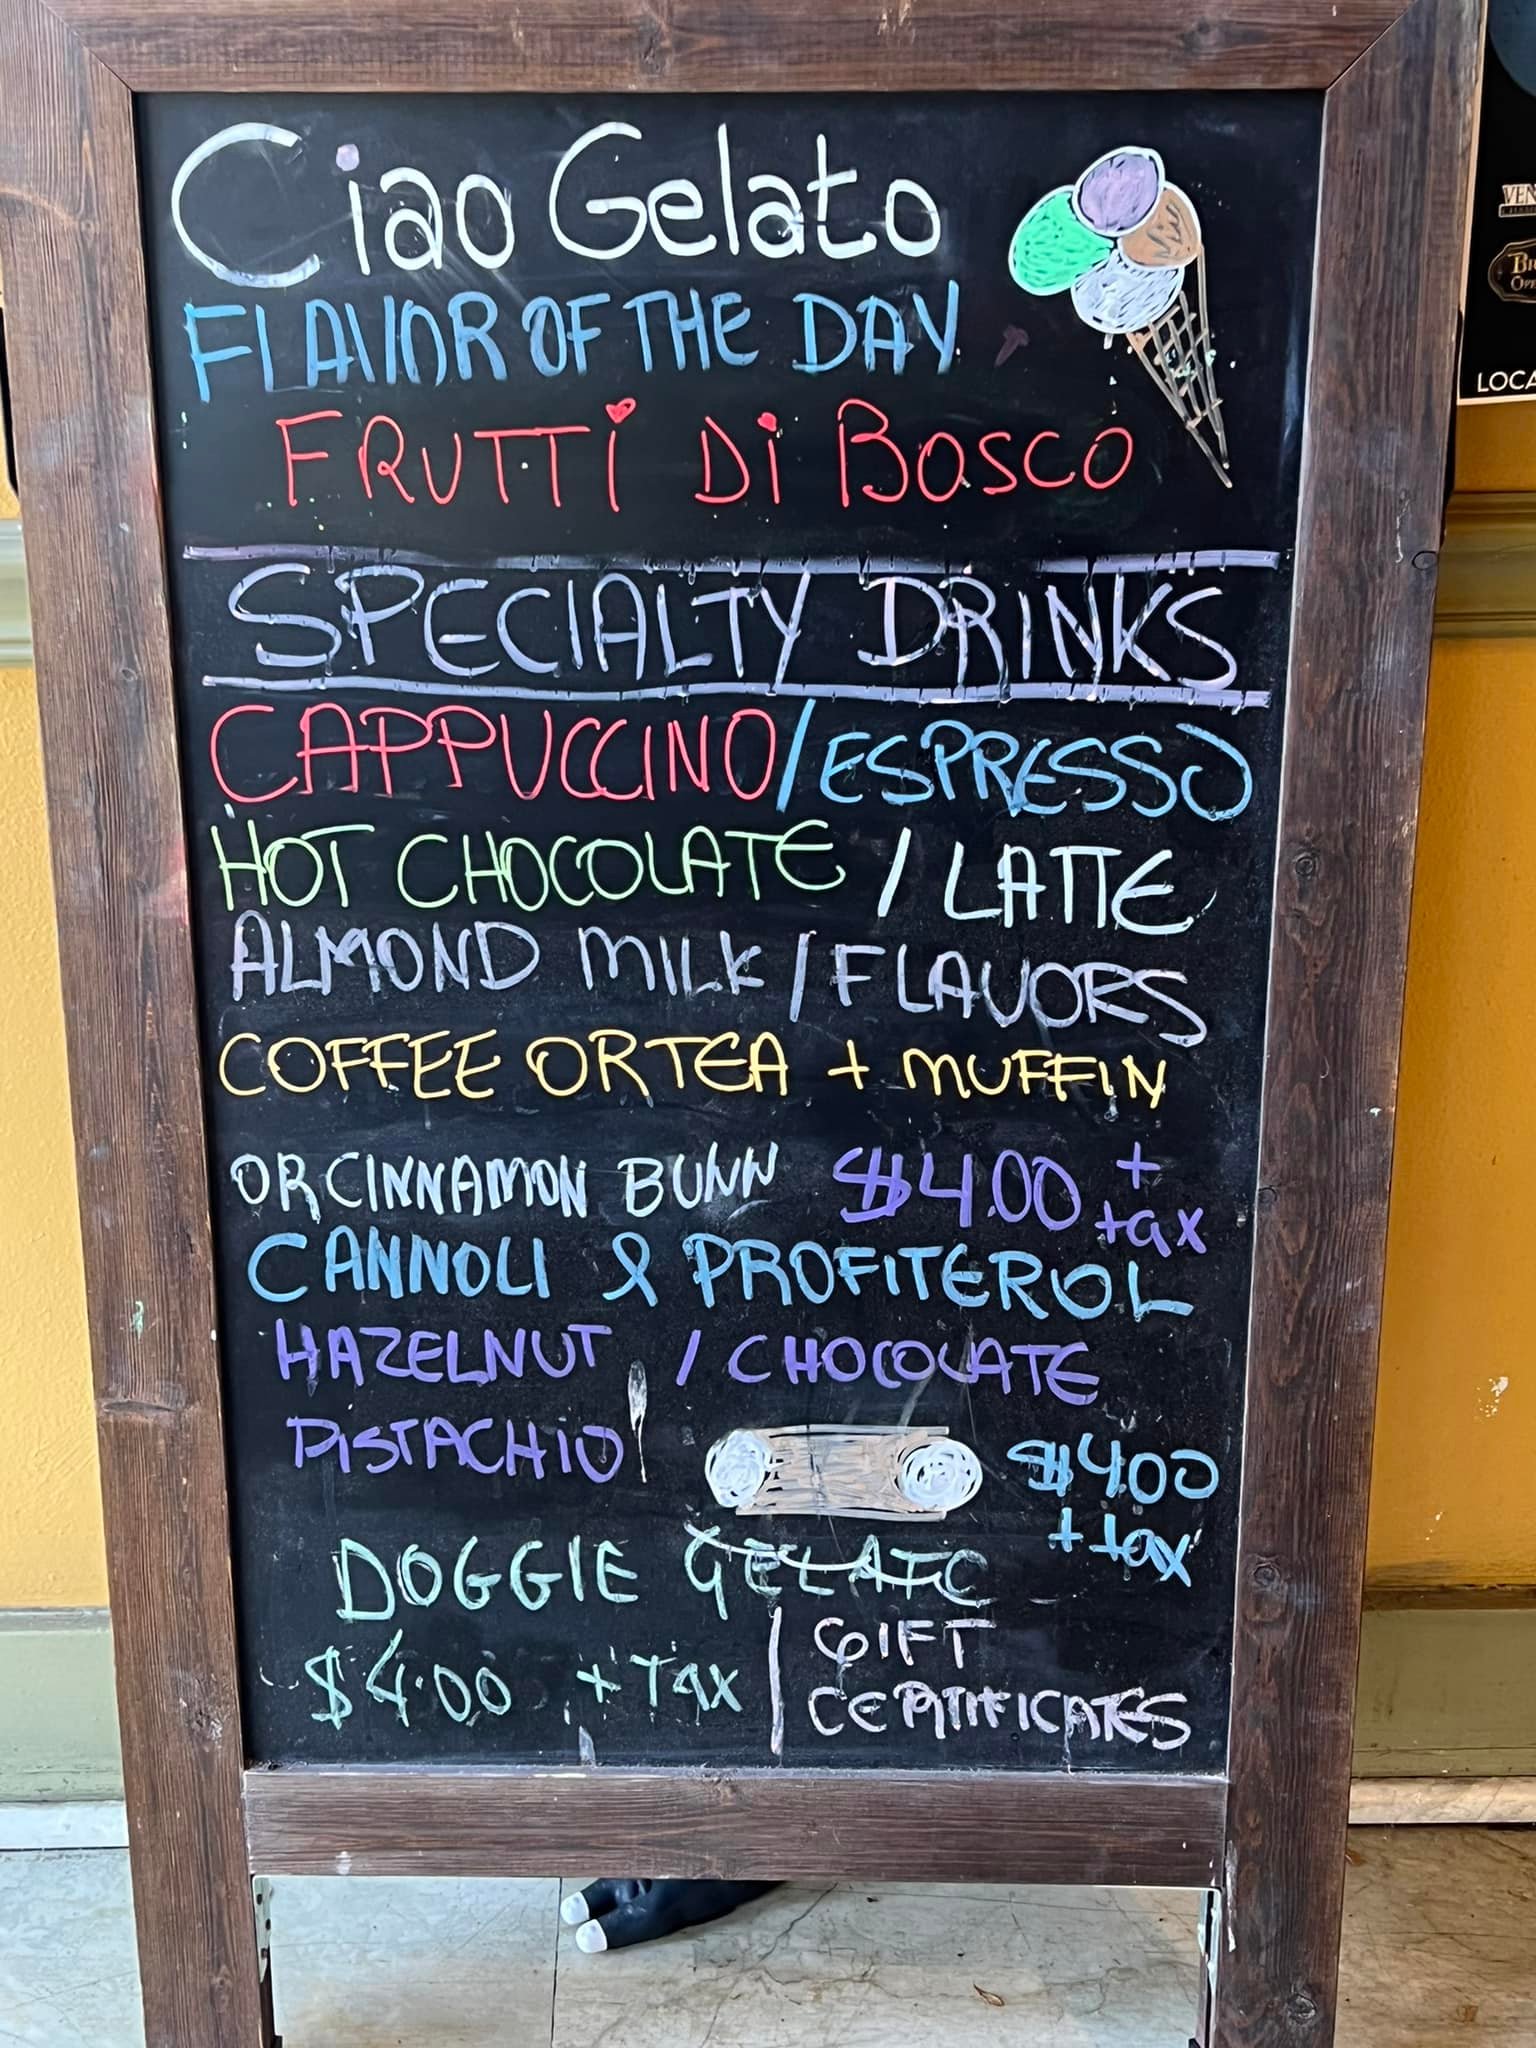 Ciao Gelato
FLAVOR OF THE DAY
FRUTTi Di BOSCO
SPECIALTY DRINKS
CAPPUCCINO/ESPRESSO
HOT CHOCOLATE / LATTE
ALMOND MILK / FLAVORS
COFFEE OR TEA + MUFFIN
OR CINNAMON BUNN $4.00 + tax
CANNOLI & PROFITEROL
HAZELNUT / CHOCOLATE
PISTACHIO
$4.00
+ tax
DOGGIE GELATO
$4.00 + TAX
GIFT
CERTIFICATES
VEN
LOCA